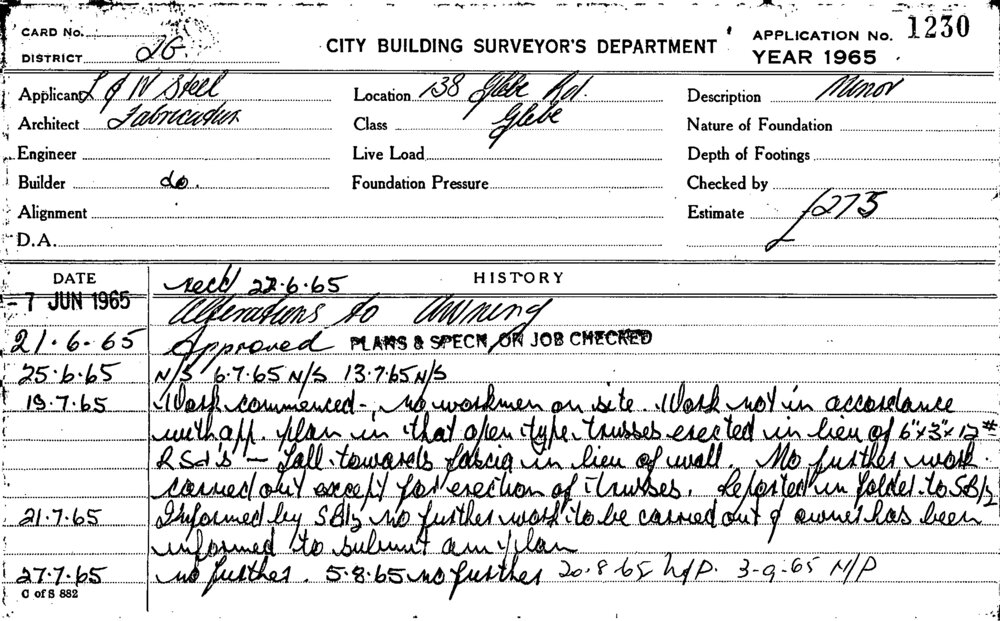 CARD No.
DISTRICT 2G.
CITY BUILDING SURVEYOR'S DEPARTMENT
APPLICATION No. 1230
YEAR 1965
Applicant L & W Steel
Location 138 Glebe Rd.
Description Minor
Architect Fabricator
Class Glebe
Nature of Foundation
Engineer
Live Load
Depth of Footings
Builder do.
Foundation Pressure
Checked by
Alignment
Estimate £275
D.A.
DATE
HISTORY
recd 22.6.65
-7 JUN 1965 Alterations to Awning
21.6.65 Approved PLANS & SPECN. ON JOB CHECKED
25.6.65 N/S 6.7.65 N/S 13.7.65 N/S
19.7.65 Work commenced -, no workmen on site. Work not in accordance
with app. plan in that open type trusses erected in lieu of 6"x3"x12#
R.S.J's - fall towards fascia in lieu of wall. No further work
carried out except for erection of trusses. Reported in folder to SB/2
21.7.65 Informed by SB/2 no further work to be carried out & owner has been
informed to submit am plan
27.7.65 no further. 5.8.65 no further 20.8.65 N/P. 3-9.65 N/P
C of S 882